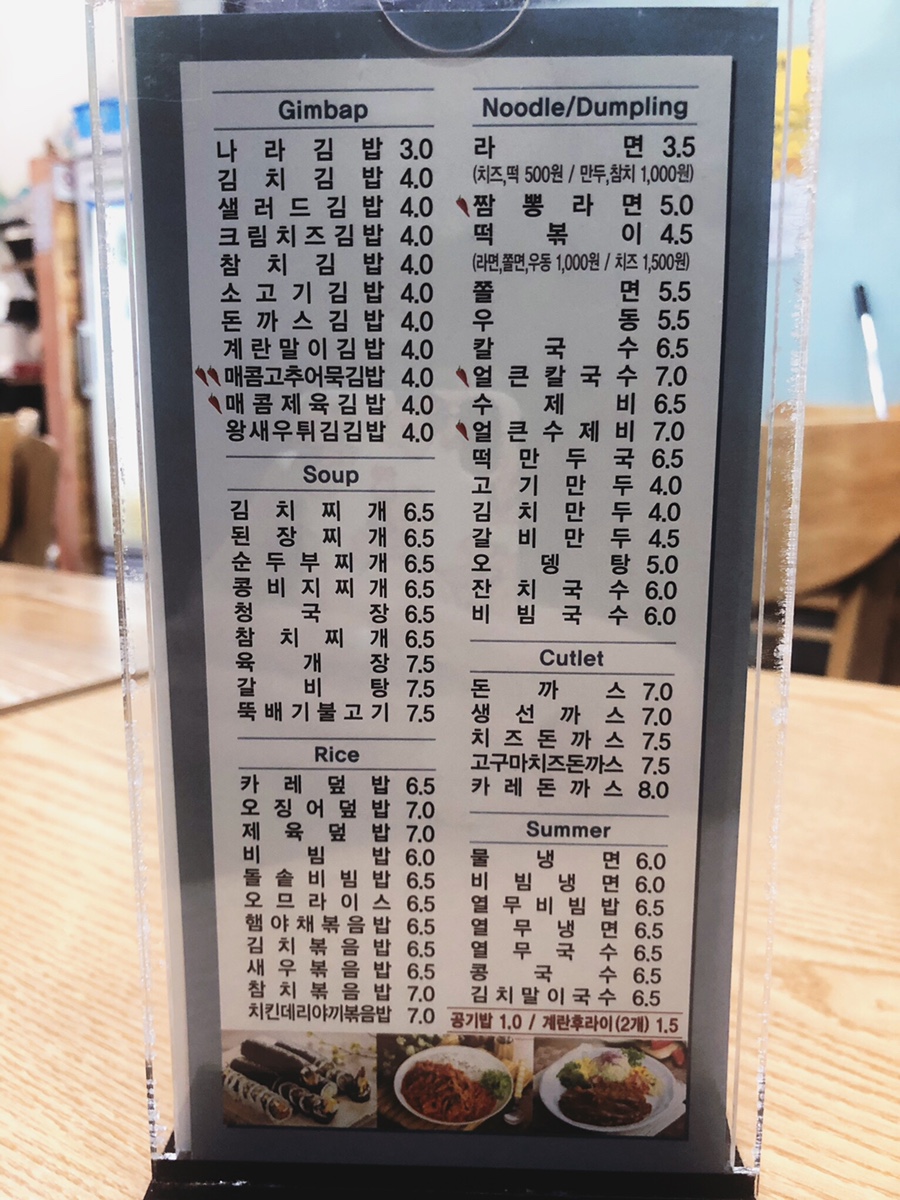 Gimbap
나라김밥 3.0
김치김밥 4.0
샐러드김밥 4.0
크림치즈김밥 4.0
참치김밥 4.0
소고기김밥 4.0
돈까스김밥 4.0
계란말이김밥 4.0
매콤고추어묵김밥 4.0
매콤제육김밥 4.0
왕새우튀김김밥 4.0
Soup
김치찌개 6.5
된장찌개 6.5
순두부찌개 6.5
콩비지찌개 6.5
청국장 6.5
참치찌개 6.5
육개장 7.5
갈비탕 7.5
뚝배기불고기 7.5
Rice
카레덮밥 6.5
오징어덮밥 7.0
제육덮밥 7.0
비빔밥 6.0
돌솥비빔밥 6.5
오므라이스 6.5
햄야채볶음밥 6.5
김치볶음밥 6.5
새우볶음밥 6.5
참치볶음밥 7.0
치킨데리야끼볶음밥 7.0
Noodle/Dumpling
라면 3.5
(치즈,떡 500원 / 만두,참치 1,000원)
짬뽕라면 5.0
떡볶이 4.5
(라면,쫄면,우동 1,000원 / 치즈 1,500원)
쫄면 5.5
우동 5.5
칼국수 6.5
얼큰칼국수 7.0
수제비 6.5
얼큰수제비 7.0
떡만두국 6.5
고기만두 4.0
김치만두 4.0
갈비만두 4.5
오뎅탕 5.0
잔치국수 6.0
비빔국수 6.0
Cutlet
돈까스 7.0
생선까스 7.0
치즈돈까스 7.5
고구마치즈돈까스 7.5
카레돈까스 8.0
Summer
물냉면 6.0
비빔냉면 6.0
열무비빔밥 6.5
열무냉면 6.5
열무국수 6.5
콩국수 6.5
김치말이국수 6.5
공기밥 1.0 / 계란후라이(2개) 1.5